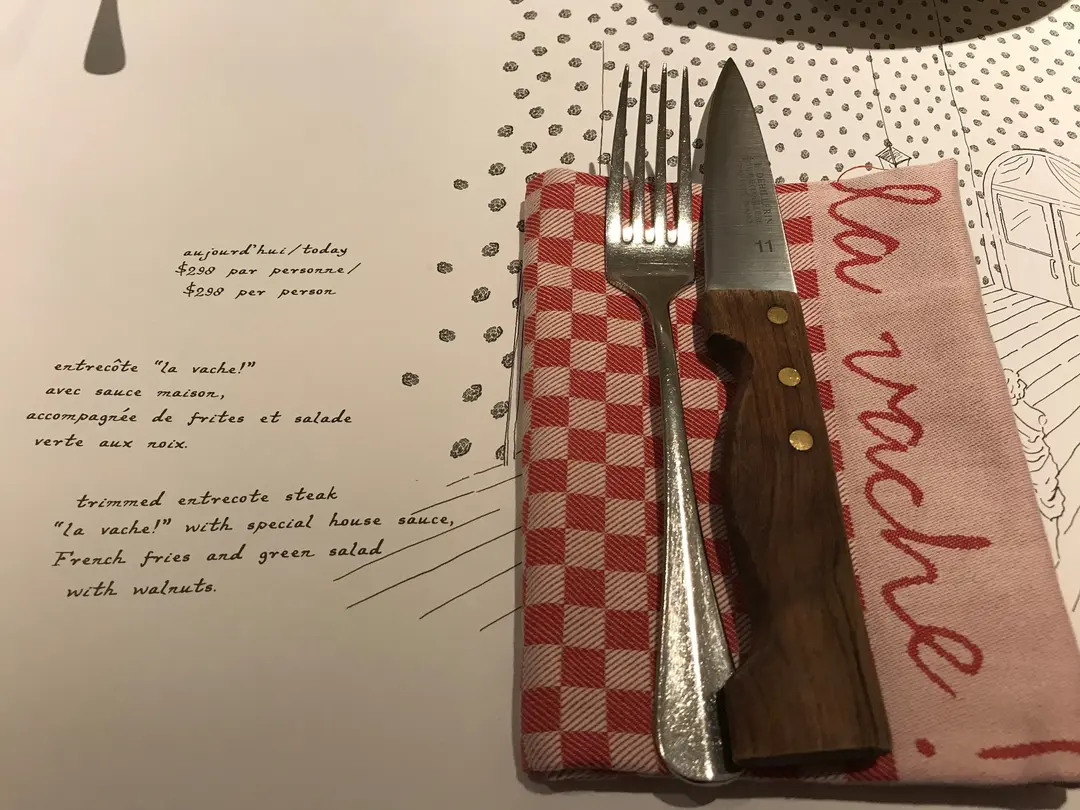 aujourd'hui/today
$298 par personne/
$298 per person
entrecôte "la vache!"
avec sauce maison,
accompagnée de frites et salade
verte aux noix.
trimmed entrecote steak
"la vache!" with special house sauce,
French fries and green salad
with walnuts.
11
la vache!